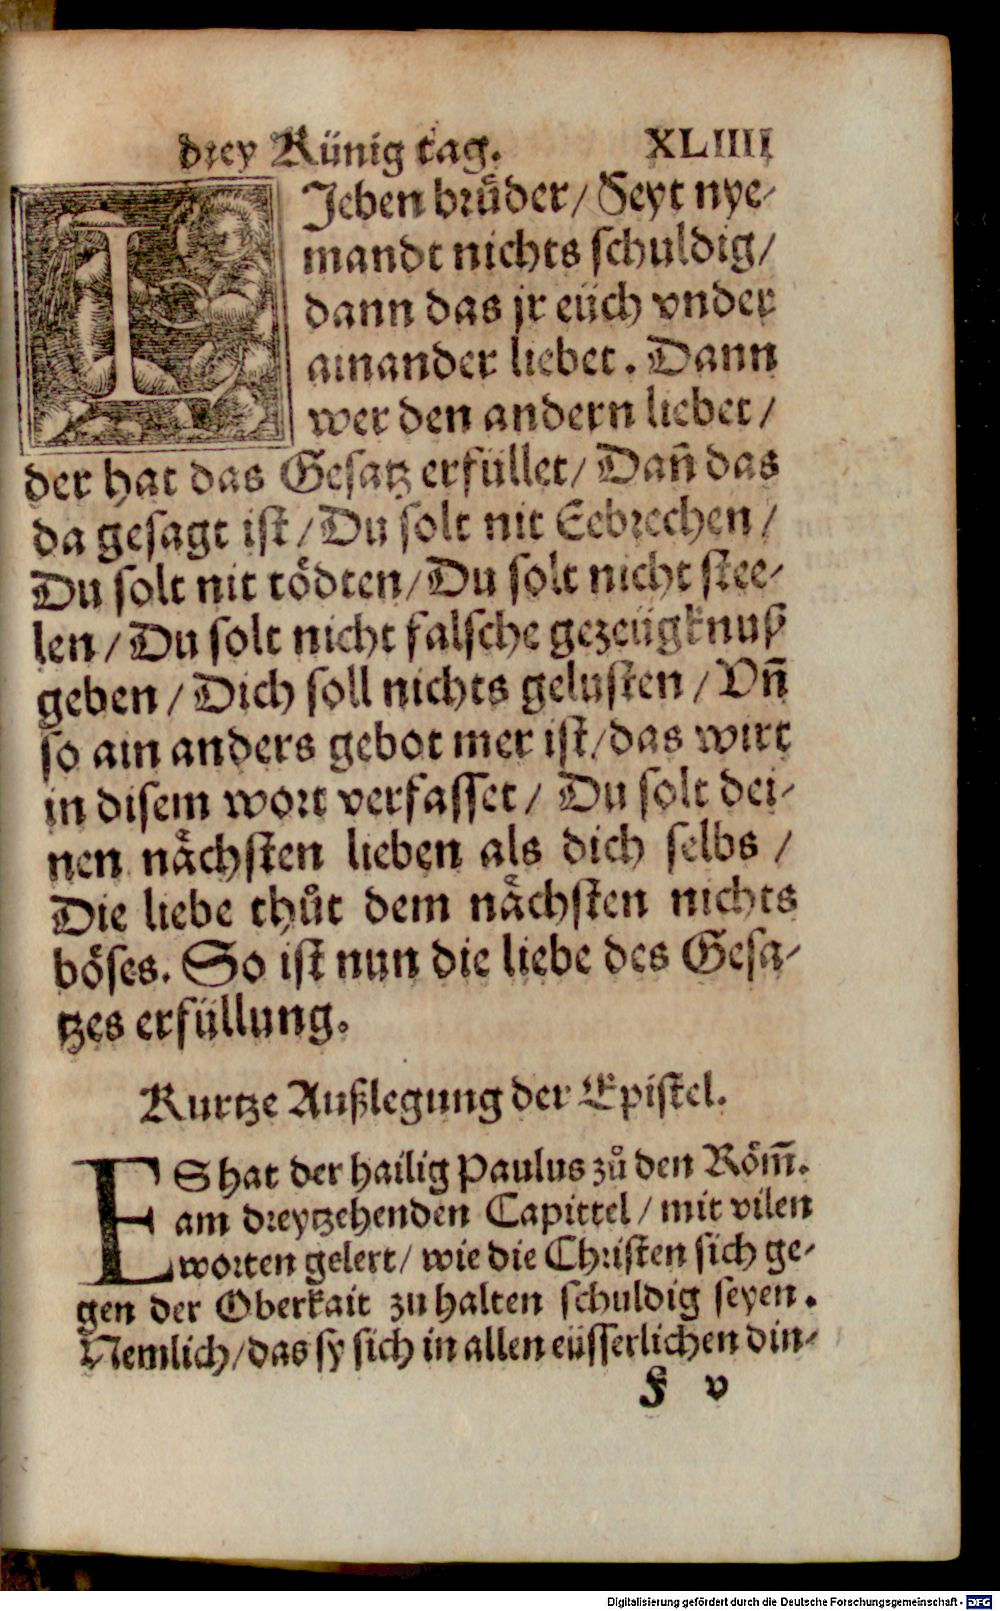 drey Künig tag. XLIIII
LJeben brůder / Seyt nye-
mandt nichts schuldig /
dann das jr eüch vnder
ainander liebet . Dann
wer den andern liebet /
der hat das Gesatz erfüllet / Dañ das
da gesagt ist / Du solt nit Eebrechen /
Du solt nit tödten / Du solt nicht stee-
len / Du solt nicht falsche gezeügknuß
geben / Dich soll nichts gelusten / Vñ
so ain anders gebot mer ist / das wirt
in disem wort verfasset / Du solt dei-
nen nächsten lieben als dich selbs /
Die liebe thůt dem nächsten nichts
böses. So ist nun die liebe des Gesa-
tzes erfüllung.
Kurtze Außlegung der Epistel.
ES hat der hailig Paulus zů den Röm̄.
am dreytzehenden Capittel / mit vilen
worten gelert / wie die Christen sich ge-
gen der Oberkait zu halten schuldig seyen .
Nemlich / das sy sich in allen eüsserlichen din-
F v
Digitalisierung gefördert durch die Deutsche Forschungsgemeinschaft - DFG